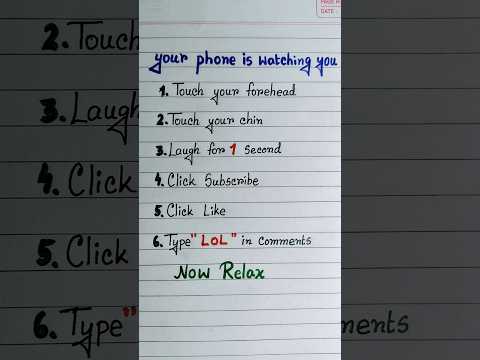 PAGE
DATE
your phone is watching you
1. Touch your forehead
2. Touch your chin
3. Laugh for 1 Second
4. Click Subscribe
5. Click Like
6. Type "LOL" in Comments
Now Relax
2. Touch
3. Laugh
4. Click
5. Click
6. Type"
ments